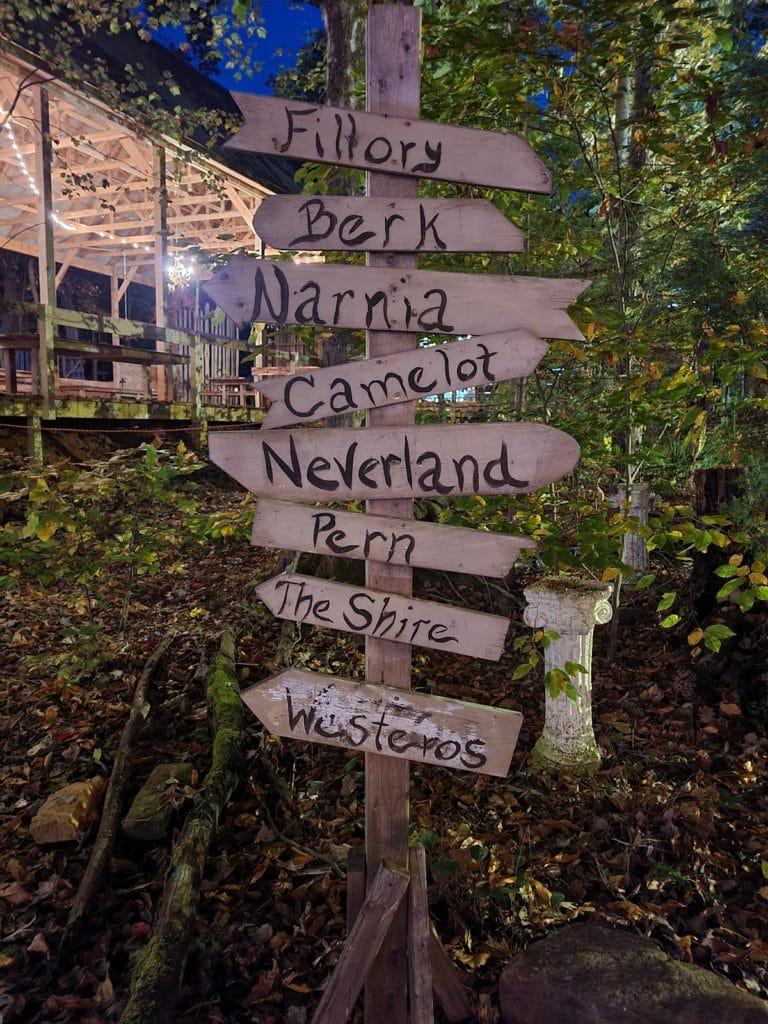 Fillory
Berk
Narnia
Camelot
Neverland
Pern
The Shire
Westeros